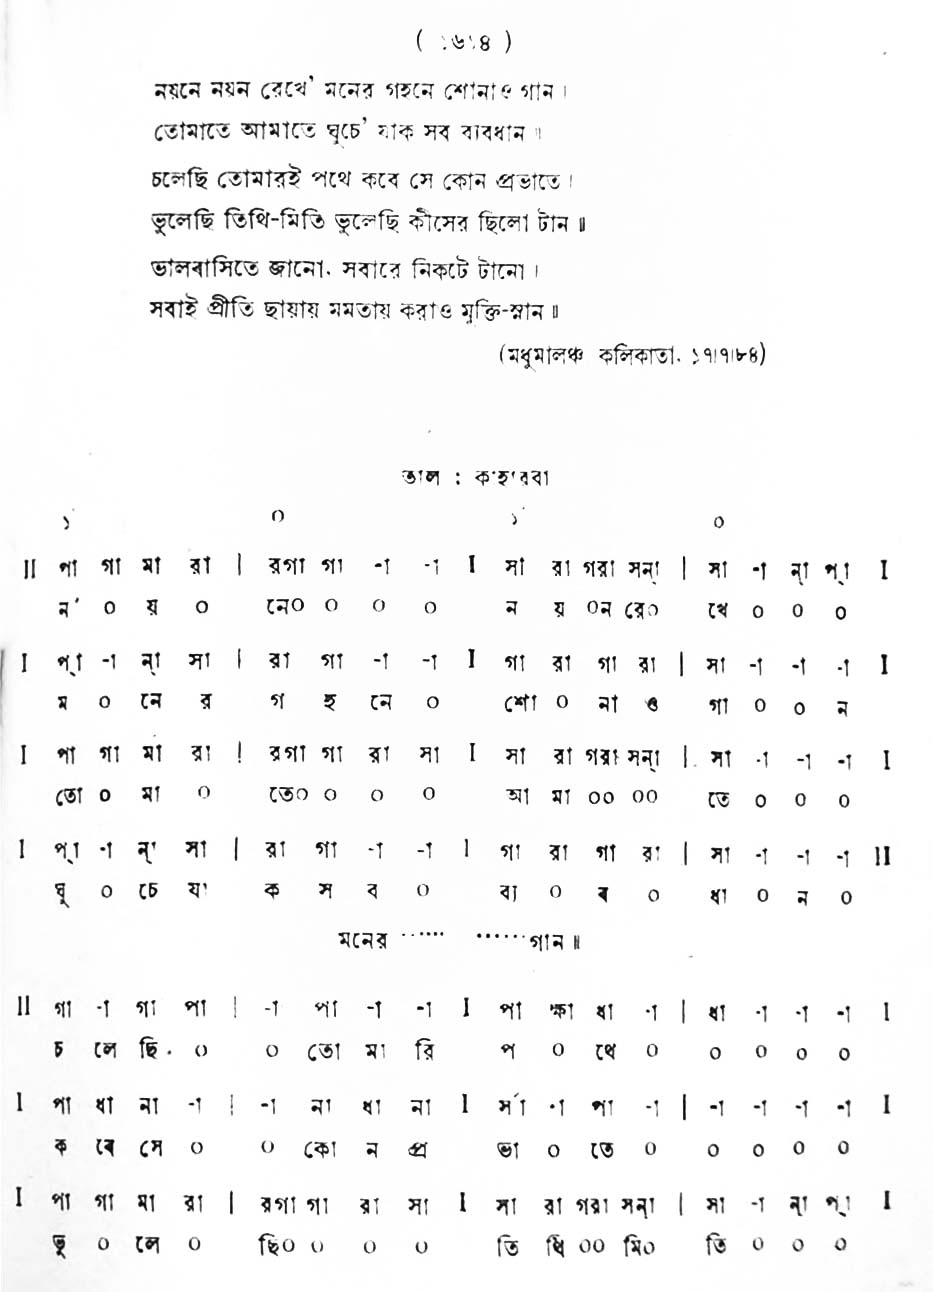 ( ১৬১৪ )
নয়নে নয়ন রেখে' মনের গহনে শোনাও গান ।
তোমাতে আমাতে ঘুচে' যাক সব ব্যবধান ॥
চলেছি তোমারই পথে কবে সে কোন প্রভাতে ।
ভুলেছি তিথি-মিতি ভুলেছি কীসের ছিলো টান ॥
ভালবাসিতে জানো, সবারে নিকটে টানো ।
সবাই প্রীতি ছায়ায় মমতায় করাও মুক্তি-স্নান ॥
(মধুমালঞ্চ কলিকাতা, ১৭।৭।৮৪)
তাল : কাহারবা
১ ০ ১ ০
II পা গা মা রা | রগা গা -া -া I সা রা গরা সন্া | সা -া ন্া প্া I
ন' ০ য় ০ নে০ ০ ০ ০ ন য় ০ন রে০ খে ০ ০ ০
I প্া -া ন্া সা | রা গা -া -া I গা রা গা রা | সা -া -া -া I
ম ০ নে র গ হ নে ০ শো ০ না ও গা ০ ০ ন
I পা গা মা রা | রগা গা রা সা I সা রা গরা সন্া | সা -া -া -া I
তো ০ মা ০ তে০ ০ ০ ০ আ মা ০০ ০০ তে ০ ০ ০
I প্া -া ন্া সা | রা গা -া -া I গা রা গা রা | সা -া -া -া II
ঘু ০ চে যা ক স ব ০ ব্য ০ ব ০ ধা ০ ন ০
মনের ...... ......গান ॥
II গা -া গা পা | -া পা -া -া I পা ক্ষা ধা -া | ধা -া -া -া I
চ লে ছি . ০ ০ তো মা রি প ০ থে ০ ০ ০ ০ ০
I পা ধা না -া | -া না ধা না I র্সা -া পা -া | -া -া -া -া I
ক বে সে ০ ০ কো ন প্র ভা ০ তে ০ ০ ০ ০ ০
I পা গা মা রা | রগা গা রা সা I সা রা গরা সন্া | সা -া ন্া প্া I
ভু ০ লে ০ ছি০ ০ ০ ০ তি থি ০০ মি০ তি ০ ০ ০